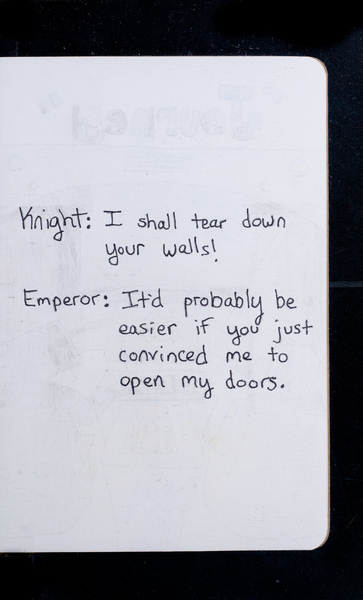 Knight: I shall tear down
your walls!
Emperor: It'd probably be
easier if you just
convinced me to
open my doors.
Journey